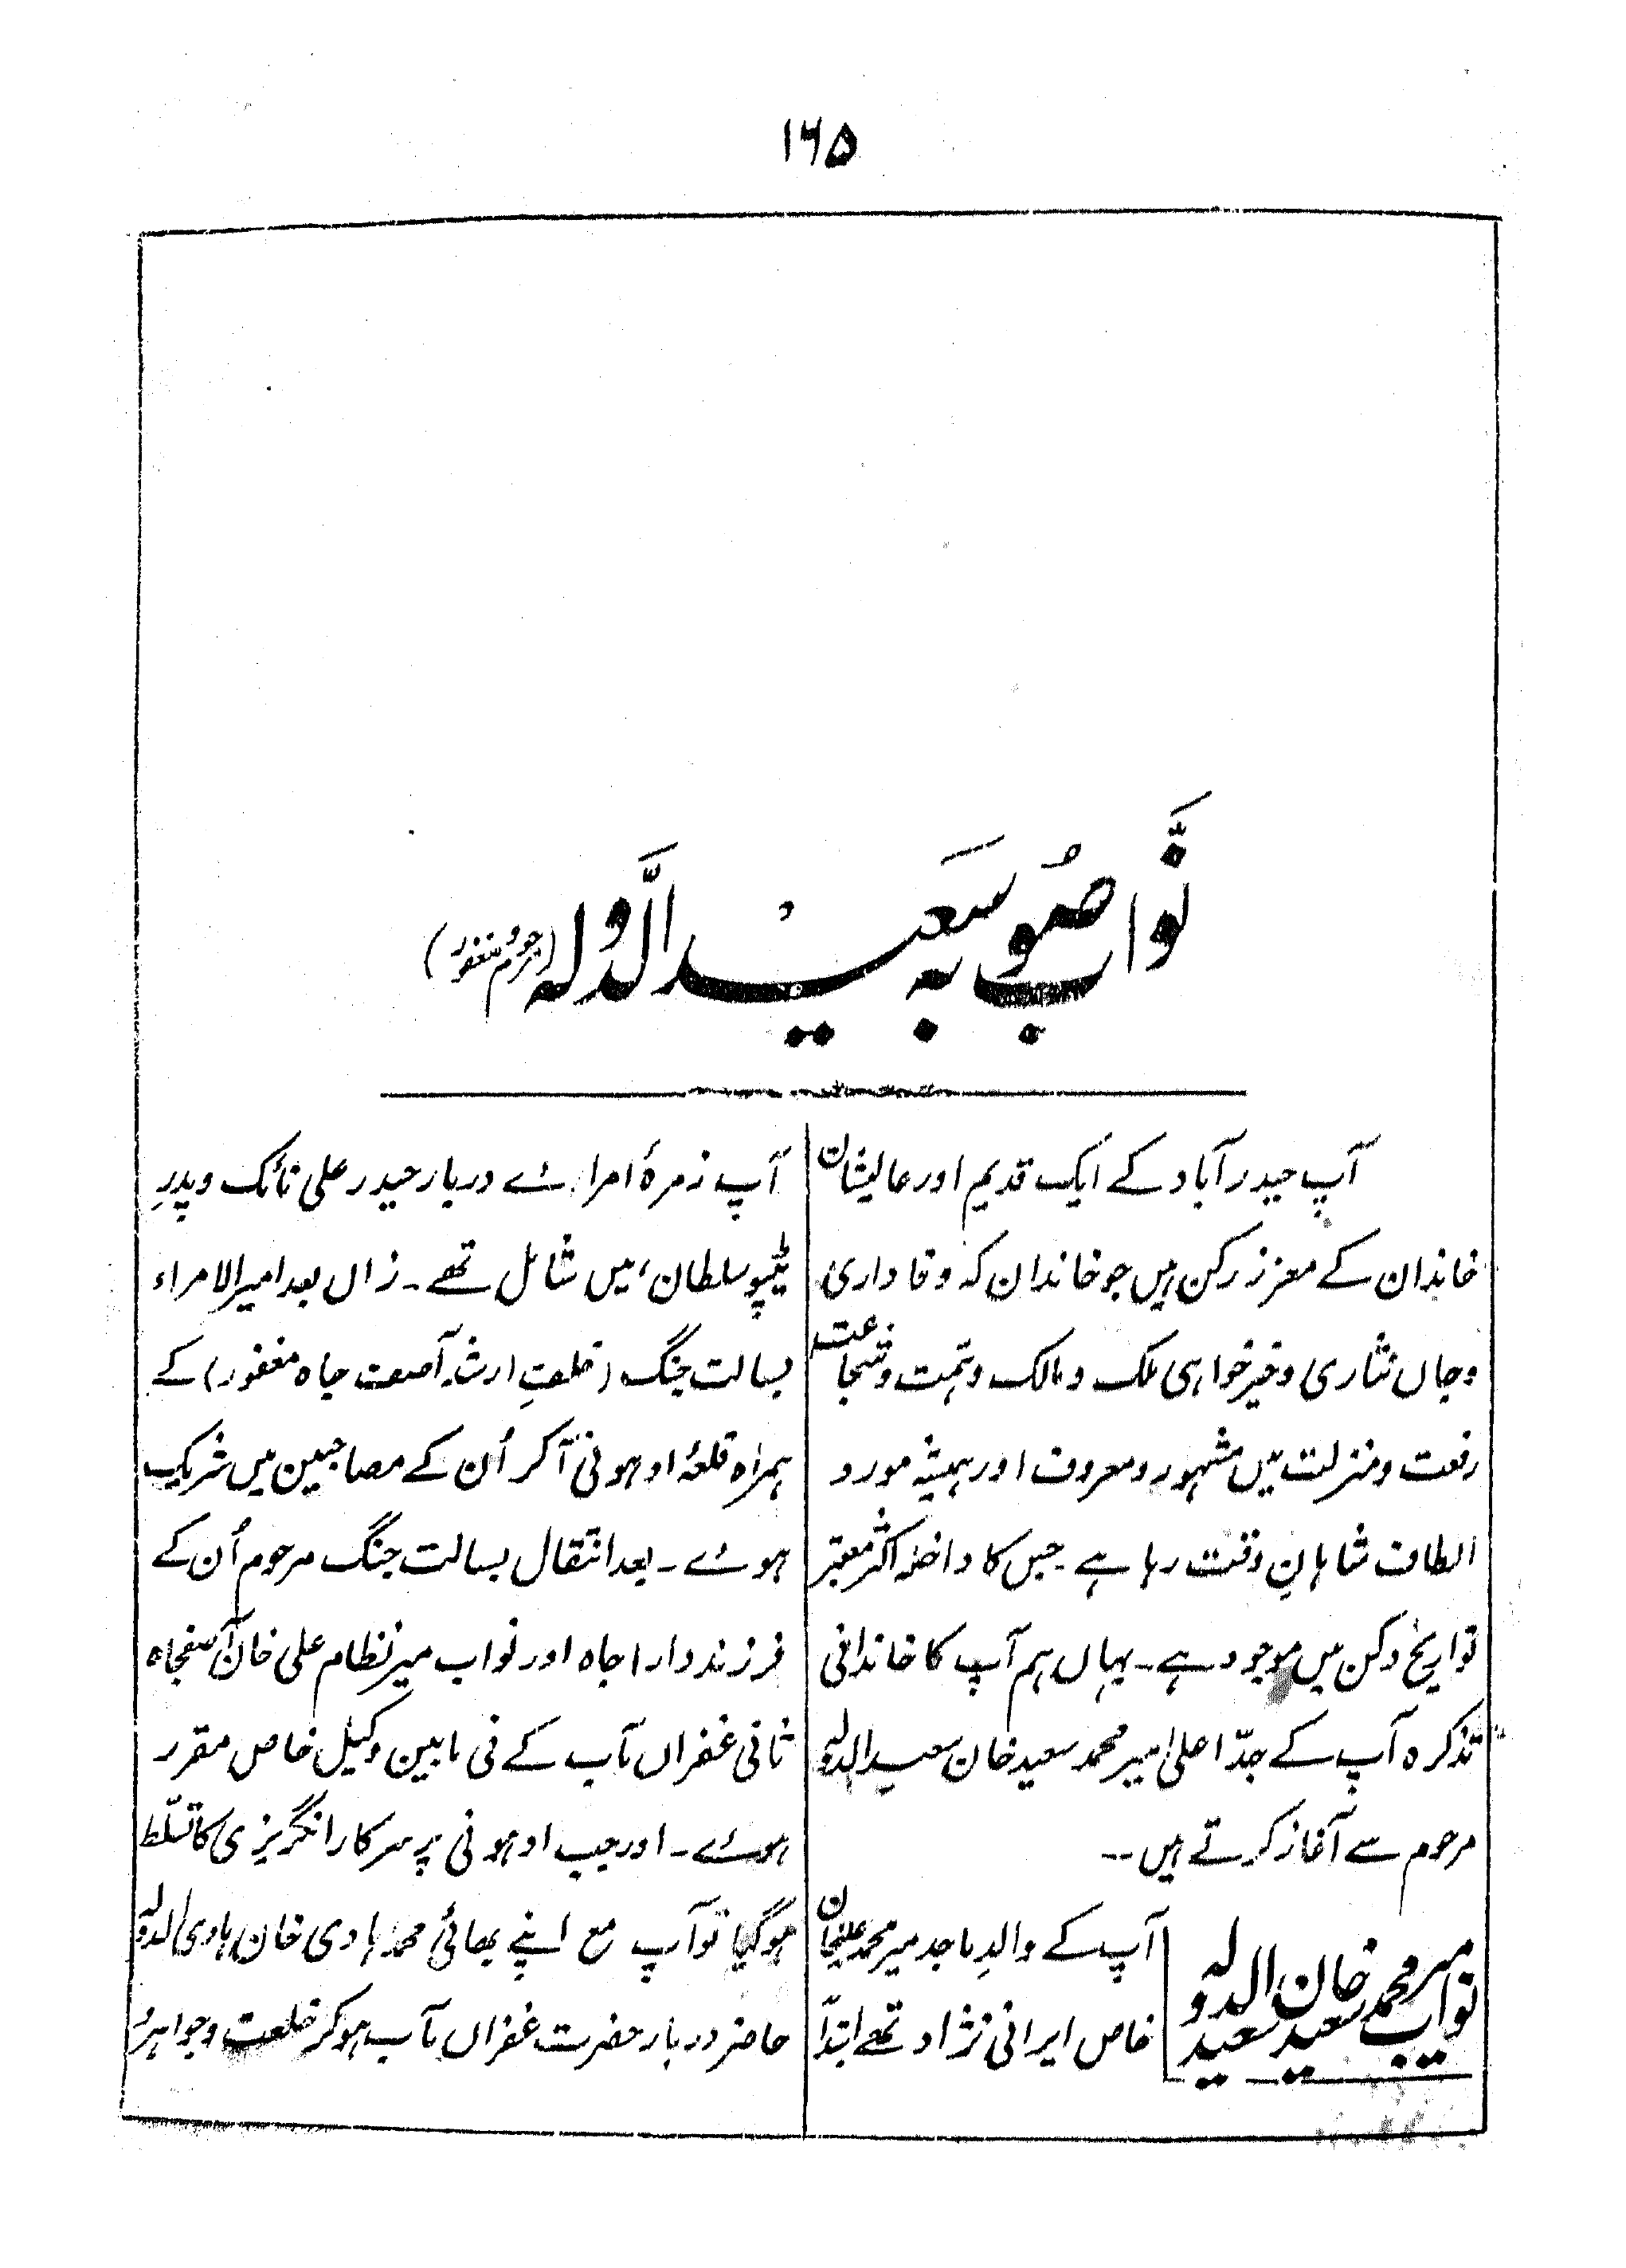 ۱۶۵
نواب صوبہ سعید الدولہ (مرحوم و مغفور)
آپ حیدرآباد کے ایک قدیم اور عالیشان
خاندان کے معزز رکن ہیں جو خاندان کہ وفاداری
وجاں نثاری و خیر خواہی ملک و مالک و ہمت و شجاعت
رفعت و منزلت میں مشہور و معروف اور ہمیشہ مورد
الطاف شاہانِ وقت رہا ہے۔ جس کا داخلہ اکثر معتبر
تواریخ دکن میں موجود ہے۔ یہاں ہم آپ کا خاندانی
تذکرہ آپ کے جدّ اعلیٰ امیر محمد سعید خان سعید الدولہ
مرحوم سے آغاز کرتے ہیں۔۔
نواب میر محمد سعید خان سعید الدولہ
آپ کے والدِ ماجد میر محمد علیخان
خاص ایرانی نژاد تھے ابتداً
آپ زمرۂ امرائے دربار حیدر علی نائک و پدرِ
ٹیپو سلطان، میں شامل تھے۔ زاں بعد امیر الامراء
بسالت جنگ (خلفِ ارشد آصف جاہ مغفور) کے
ہمراہ قلعۂ اودہونی آکر اُن کے مصاحبین میں شریک
ہوئے۔ بعد انتقال بسالت جنگ مرحوم اُن کے
فرزند داراجاہ اور نواب میر نظام علی خان آصفجاہ
ثانی غفراں مآب کے فی مابین وکیل خاص مقرر
ہوئے۔ اور جب اودہونی پر سرکار انگریزی کا تسلّط
ہوگیا تو آپ مع اپنے بھائی محمد ہادی خان ہادی الدولہ
حاضر دربار حضرت غفراں مآب ہوکر خلعت و جواہر